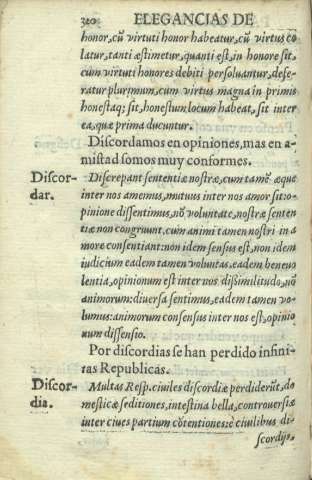 320 ELEGANCIAS DE
honor, cũ virtuti honor habeatur, cũ virtus co
latur, tanti æstimetur, quanti est, in honore sit,
cum virtuti honores debiti persoluantur, defe-
ratur plurimum, cum virtus magna in primis
honestaq; sit, honestum locum habeat, sit inter
ea, quæ prima ducuntur.
Discordamos en opiniones, mas en a-
mistad somos muy conformes.
Discor-
dar.
Discrepant sententiæ nostræ, cum tamẽ æque
inter nos amemus, mutuus inter nos amor sit: o-
pinione dissentimus, nõ voluntate, nostræ senten
tiæ non congruunt, cum animi tamen nostri in a
more consentiant: non idem sensus est, non idem
iudicium eadem tamen voluntas, eadem beneuo
lentia, opinionum est inter nos dißimilitudo, nõ
animorum: diuersa sentimus, eadem tamen vo-
lumus: animorum consensus inter nos est, opinio
num dissensio.
Por discordias se han perdido infini-
tas Republicas.
Discor-
dia.
Multas Resp. ciuiles discordiæ perdiderũt, do
mesticæ seditiones, intestina bella, controuersiæ
inter ciues partium cõtentiones: è ciuilibus di-
scordijs,